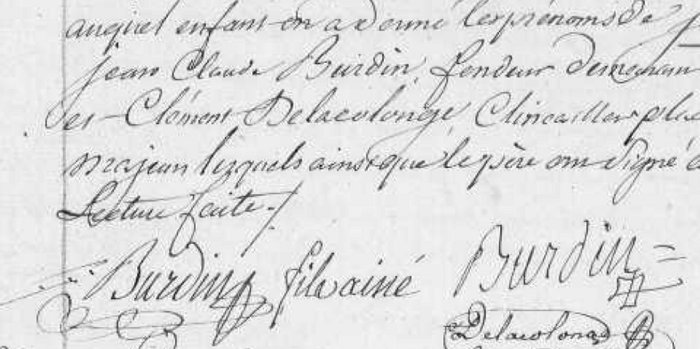 auquel enfant on a donné les prénoms de
jean Claude Burdin, fondeur demeuran
et Clément Delacolonge Clincailler pla
majeurs lesquels ainsi que le père ont Signé
Lecture faite ./.
Burdin fils ainé Burdin
Delacolonge